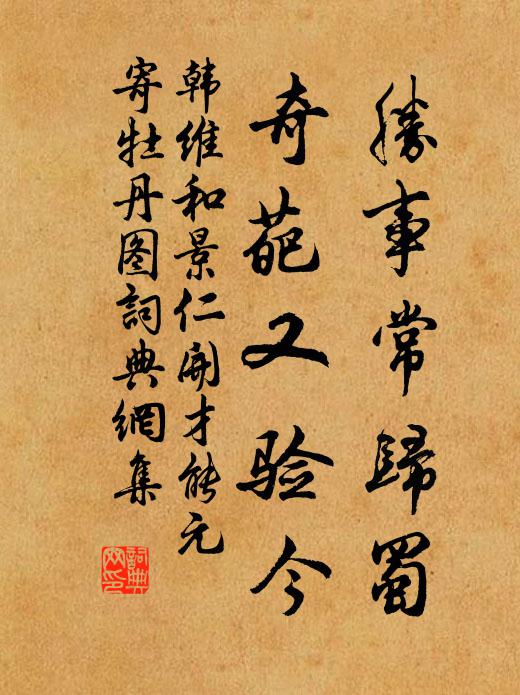 勝事常歸蜀
奇葩又验今
韩维和景仁開才能元
寄牡丹图詞典網集
詞典网印